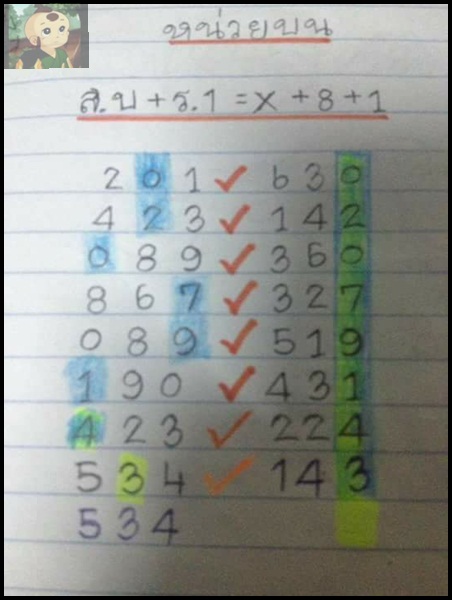 หน่วยบน
ส.บ + ร.1 = x + 8 + 1
2 0 1 ✓ 6 3 0
4 2 3 ✓ 1 4 2
0 8 9 ✓ 3 6 0
8 6 7 ✓ 3 2 7
0 8 9 ✓ 5 1 9
1 9 0 ✓ 4 3 1
4 2 3 ✓ 2 2 4
5 3 4 ✓ 1 4 3
5 3 4